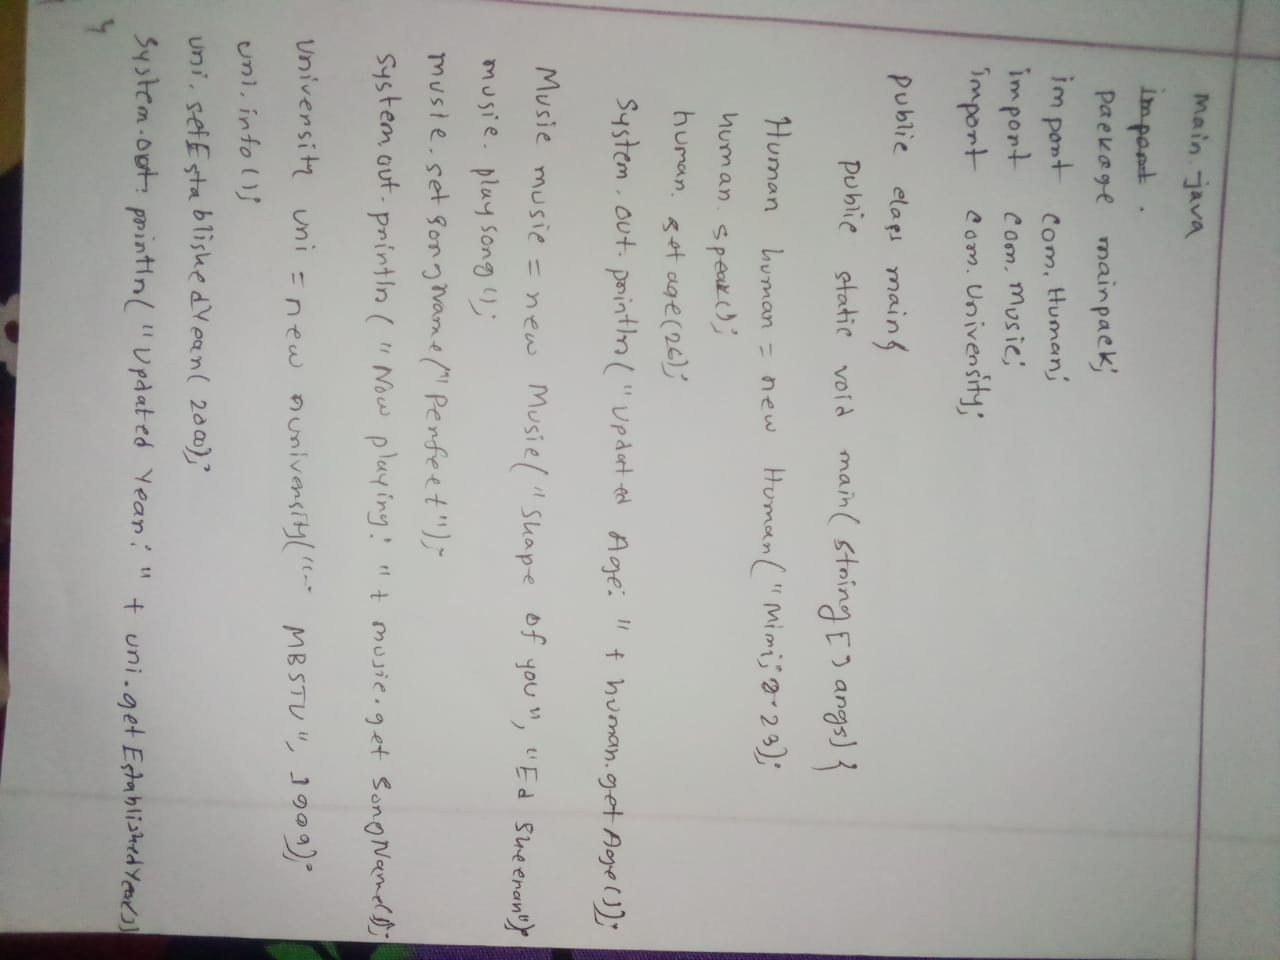 main.java
import.
package mainpack;
import com.Human;
import com.Music;
import com.University;
public class main{
public static void main(String[] args){
Human human = new Human("Mimi; 23);
human.speak();
human.set age(26);
System.out.println("Updated Age: " + human.getAge());
Music music = new Music("Shape of you", "Ed Sheeran");
music.playsong();
music.setSongName("Perfect");
System.out.println("Now playing: " + music.getSongName());
University uni = new university(" MBSTU", 1999);
uni.info();
uni.setEstablishedYear(2000);
System.out.println("Updated Year: " + uni.getEstablishedYear())
}